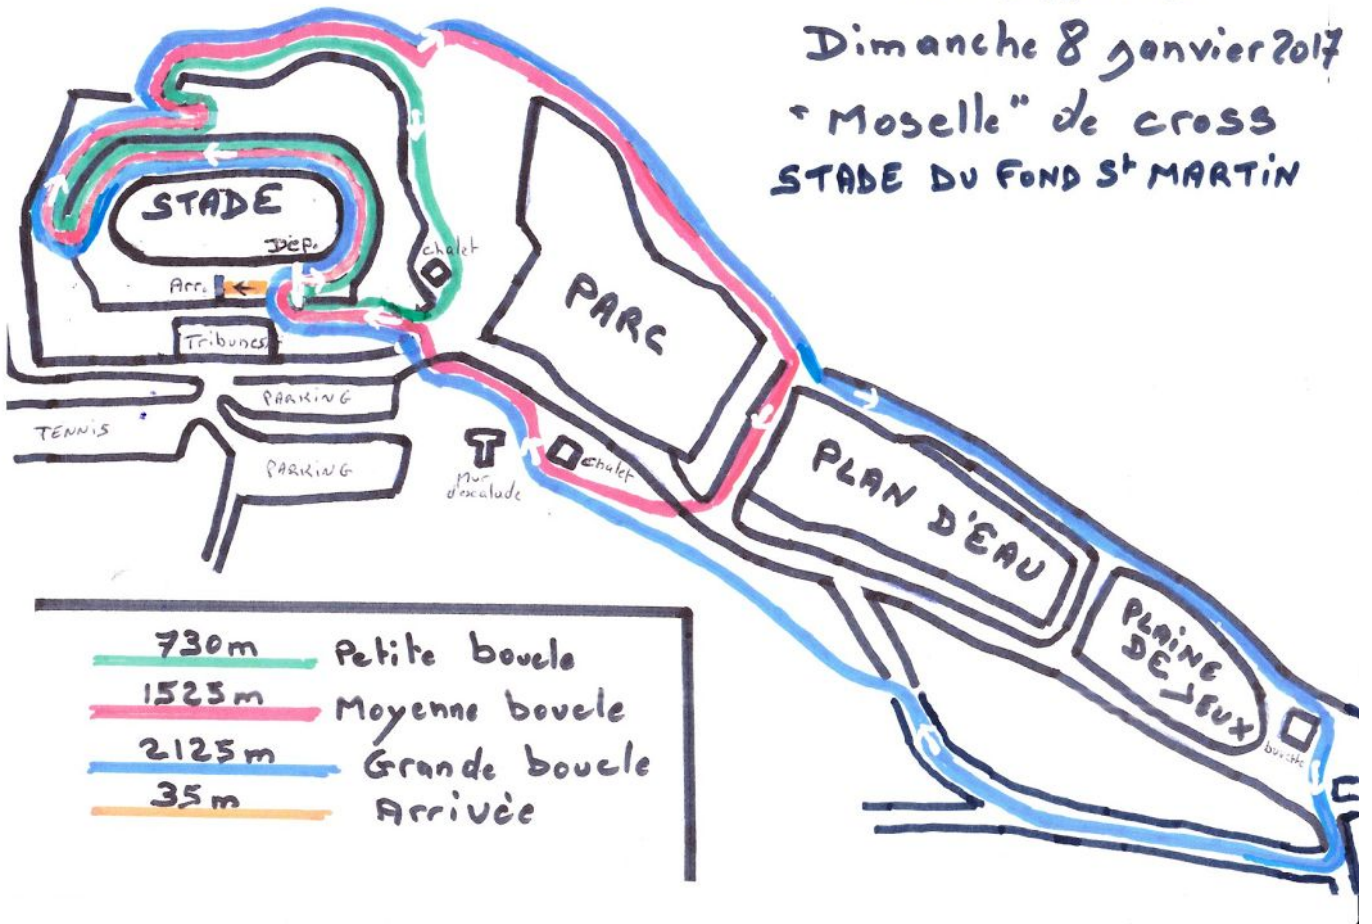 Dimanche 8 janvier 2017
"Moselle" de cross
STADE DU FOND St MARTIN
STADE
Dép.
chalet
Arr.
PARC
Tribunes
PARKING
TENNIS
PARKING
Mur
d'escalade
chalet
PLAN D'EAU
PLAINE
DE JEUX
buvette
730m Petite boucle
1525m Moyenne boucle
2125m Grande boucle
35m Arrivée